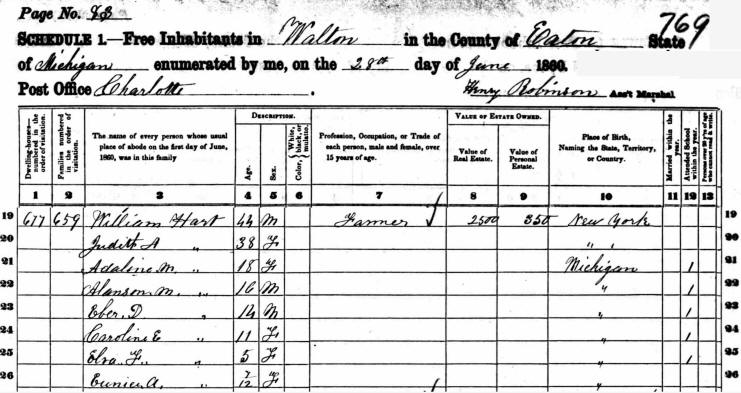 Page No. 83
769
SCHEDULE 1.—Free Inhabitants in Walton in the County of Eaton State
of Michigan enumerated by me, on the 28th day of June 1860.
Post Office Charlotte . Henry Robinson Ass't Marshal
Dwelling-houses— numbered in the order of visitation.
Families numbered in the order of visitation.
The name of every person whose usual place of abode on the first day of June, 1860, was in this family
DESCRIPTION.
Age.
Sex.
Color, White, black, or mulatto.
Profession, Occupation, or Trade of each person, male and female, over 15 years of age.
VALUE OF ESTATE OWNED.
Value of Real Estate.
Value of Personal Estate.
Place of Birth, Naming the State, Territory, or Country.
Married within the year.
Attended School within the year.
Persons over 20 y'rs of age who cannot read & write.
1 2 3 4 5 6 7 8 9 10 11 12 13
19 677 659 William Hart 44 M Farmer 2500 350 New York 19
20 Judith A " 38 F " " 20
21 Adaline M. " 18 F Michigan 1 21
22 Alanson M. " 16 M " 1 22
23 Eber D. " 14 M " 1 23
24 Caroline E " 11 F " 1 24
25 Elva F. " 5 F " 1 25
26 Eunice A. " 7/12 F " 26